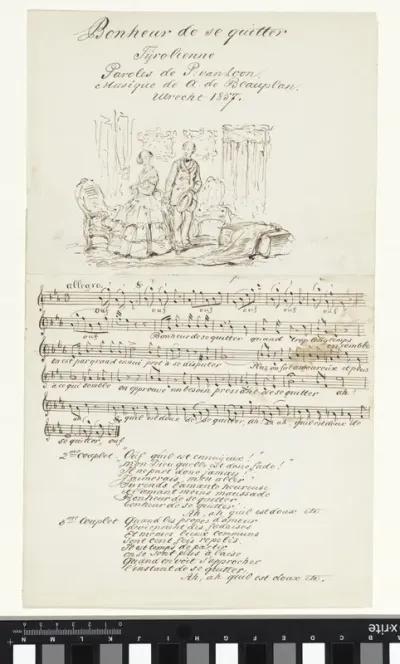 Bonheur de se quitter
Tyrolienne
Paroles de P. van Loon.
Musique de A. de Beauplan.
Utrecht 1857.
allegro
ouf ouf ouf ouf
ouf Bonheur de se quitter quand trop longtemps
ensemble
on est par grand ennui prêt à se disputer Plus on fut amoureux et plus
à ce qui semble on éprouve un besoin pressant de se quitter ah!
qu'il est doux de se quitter, ah! ah qu'il est doux de
se quitter, ouf
2me Couplet "Ouf qu'il est ennuijeux!"
"Mon Dieu qu'elle est donc fade!"
donc jamais
"J'aimerais m'en aller"
l'amante heureuse
et l'amant moins maussade
Bonheur de se quitter
Bonheur de se quitter
Ah, ah qu'il est doux etc.
3me Couplet Quand les propos d'amour
deviennent des
Et lieux communs
Sont cent fois répétés
temps de partir
on se plus à l'aise
Quand on voit s'approcher
L'instant de se quitter.
Ah, ah qu'il est doux etc.
x-rite
cm